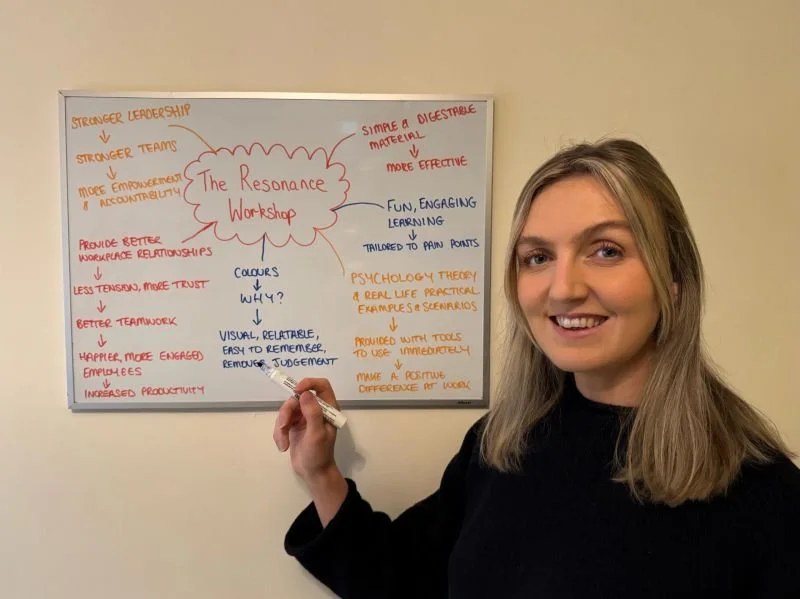 STRONGER LEADERSHIP
↓
STRONGER TEAMS
↓
MORE EMPOWERMENT
& ACCOUNTABILITY
The Resonance
Workshop
SIMPLE & DIGESTABLE
MATERIAL
↓
MORE EFFECTIVE
FUN, ENGAGING
LEARNING
↓
TAILORED TO PAIN POINTS
PROVIDE BETTER
WORKPLACE RELATIONSHIPS
↓
LESS TENSION, MORE TRUST
↓
BETTER TEAMWORK
↓
HAPPIER, MORE ENGAGED
EMPLOYEES
↓
INCREASED PRODUCTIVITY
COLOURS
↓
WHY?
↓
VISUAL, RELATABLE,
EASY TO REMEMBER,
REMOVES JUDGEMENT
PSYCHOLOGY THEORY
& REAL LIFE PRACTICAL
EXAMPLES & SCENARIOS
↓
PROVIDED WITH TOOLS
TO USE IMMEDIATELY
↓
MAKE A POSITIVE
DIFFERENCE AT WORK